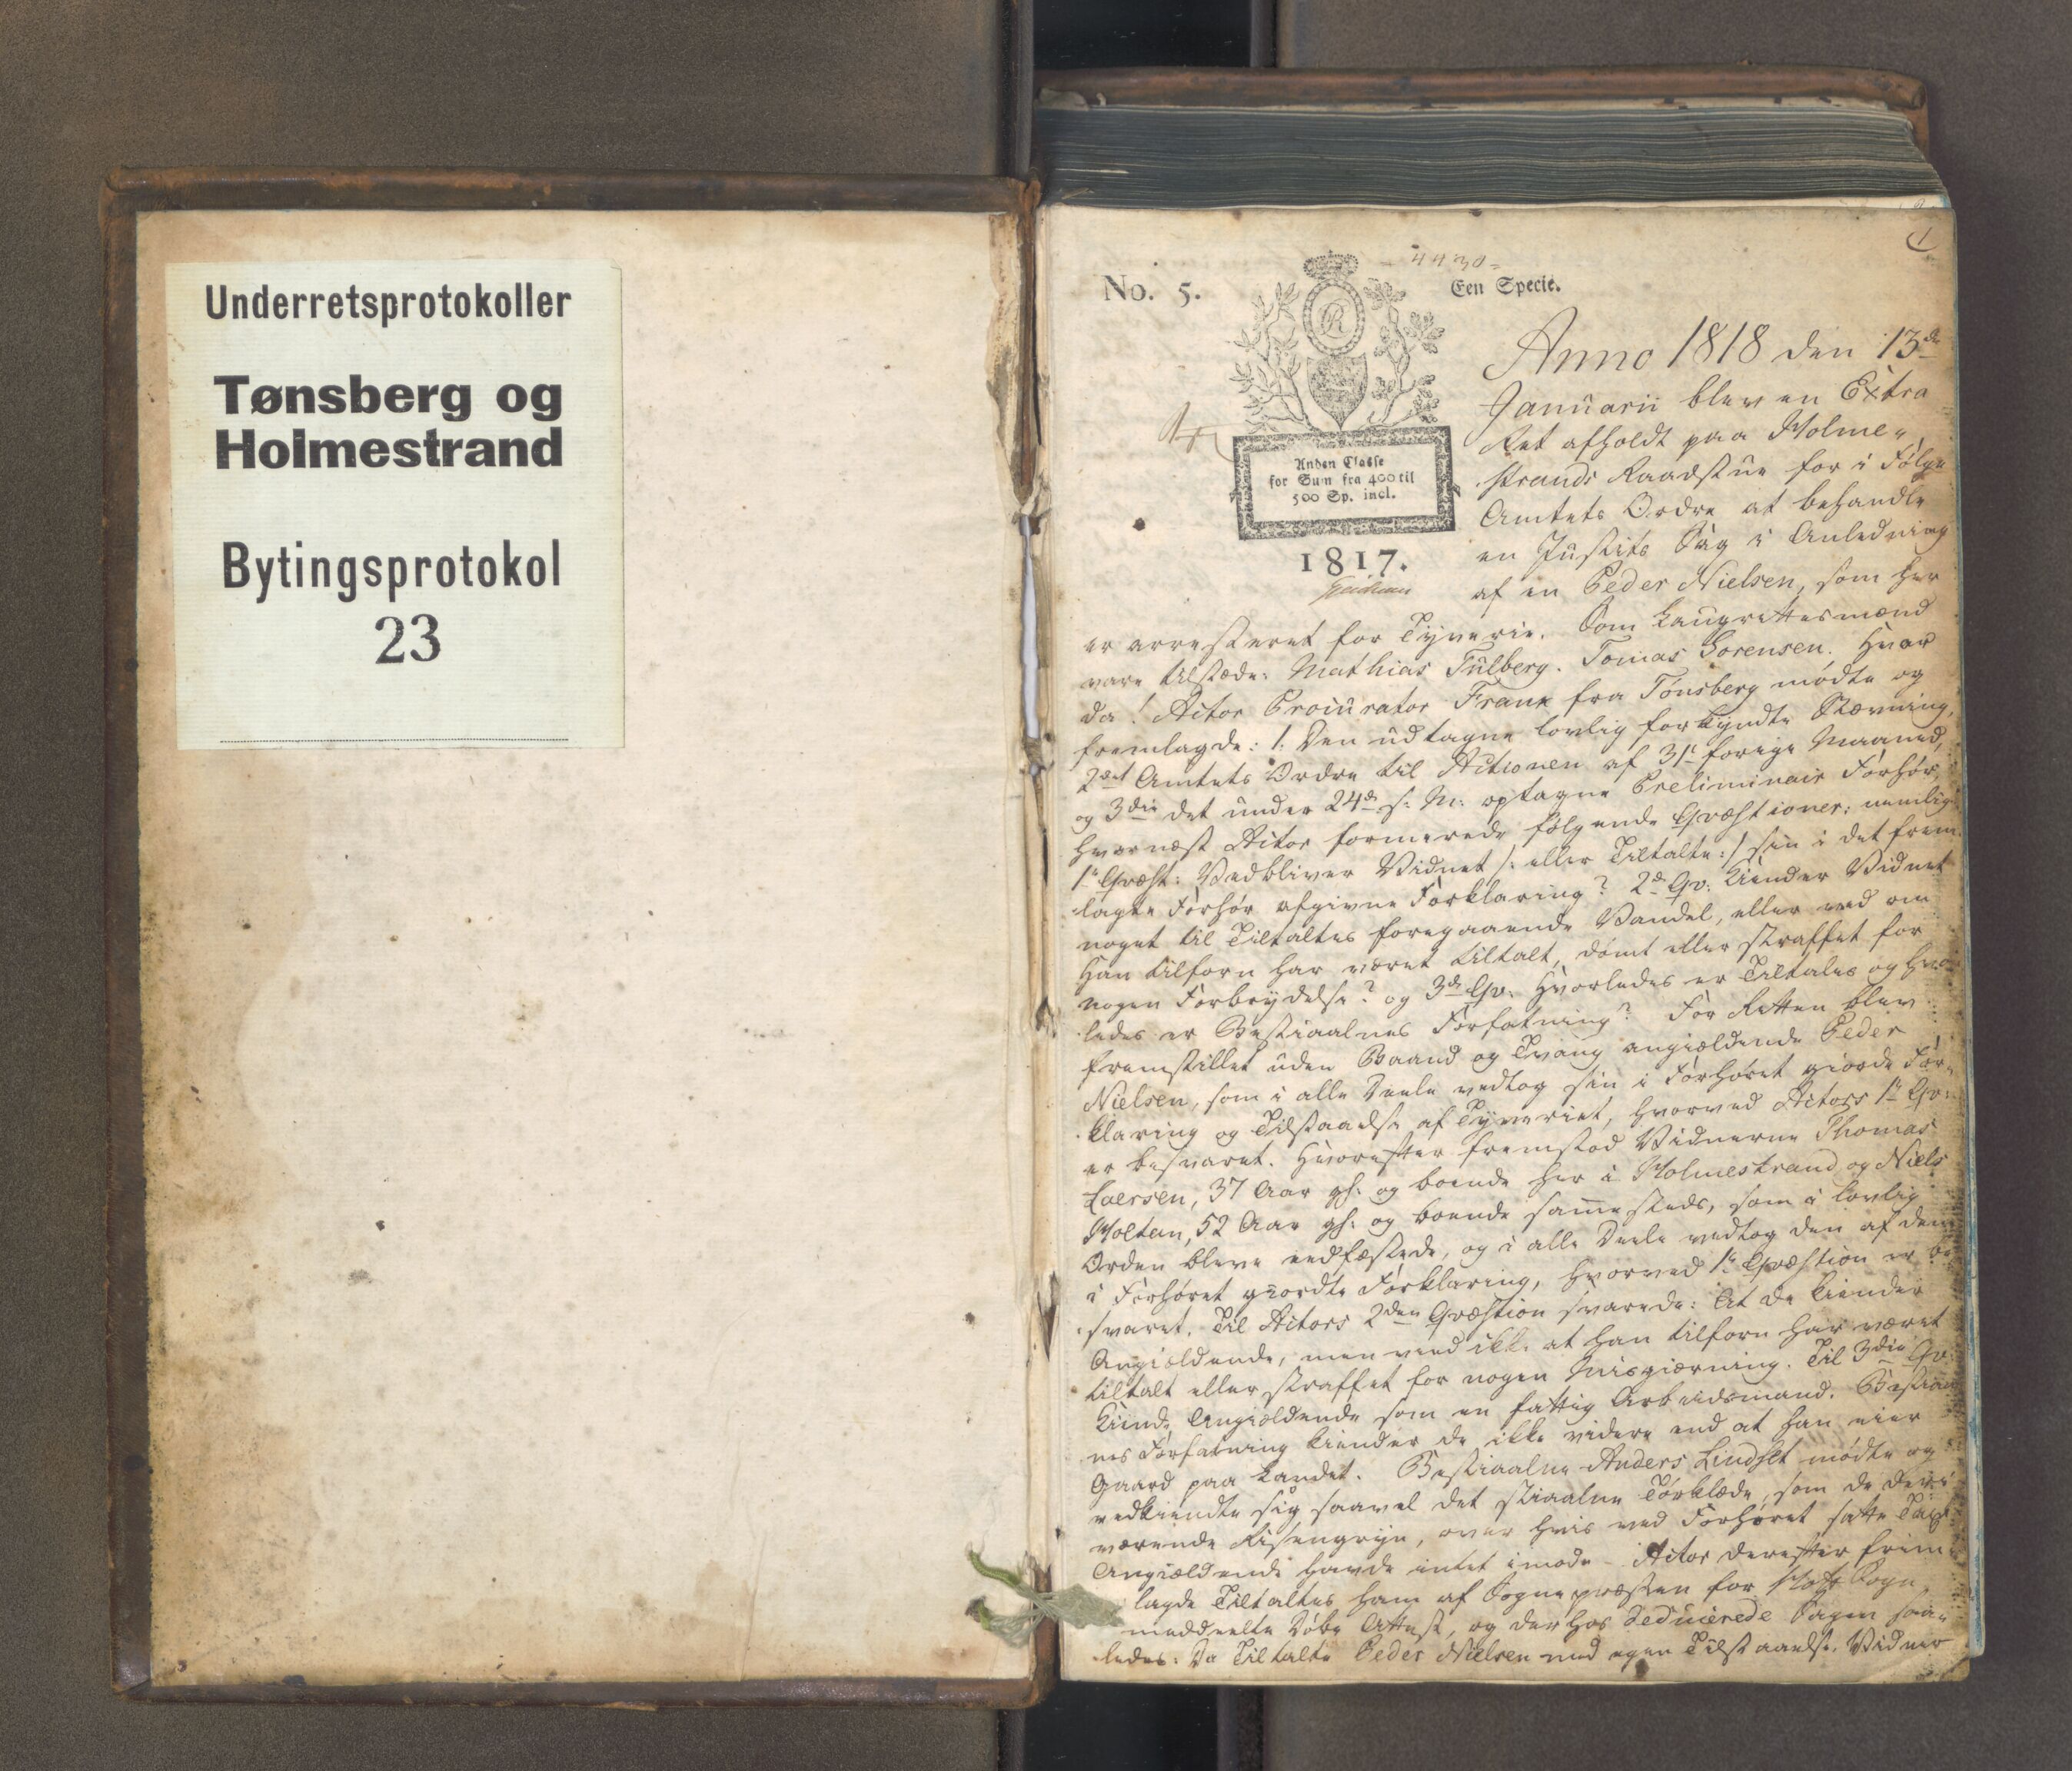 Underretsprotokoller
Tønsberg og
Holmestrand
Bytingsprotokol
23
1
4430
No. 5.
Een Specie.
R
Anden Classe
for Sum fra 400 til
500 Sp. incl.
1817.
Anno 1818 den 13de
Januarii blev en Extra
Ret afholdt paa Holme-
strands Raadstue for i Følge
Amtets Ordre at behandle
en Justits Sag i Anledning
af en Peder Nielsen, som her
er arresteret for Tyverie. Som Laugrettesmænd
vare tilstæde: Mathias Fulberg. Tomas Sorensen. Hvor
da! Actor Procurator Frank fra Tønsberg mødte og
fremlagde: 1. Den udtagne lovlig forkyndte Stævning,
2det Amtets Ordre til Actionen af 31te forrige Maaned,
og 3die det under 24de s: M: optagne Preliminair Forhør,
hvornæst Actor formerede følgende Qvæstioner: nemlig
1te Qvæst: Vedbliver Vidnet /: eller Tiltalte :/ sin i det frem-
lagte Forhør afgivne Forklaring? 2de Qv: Kiender Vidnet
noget til Tiltaltes foregaaende Vandel, eller ved om
han tilforn har været tiltalt, dømt eller straffet for
nogen Forbrydelse? og 3de Qv. Hvorledes er Tiltaltes og hvor-
ledes er Bestiaalnes Forfatning? For Retten blev
fremstillet uden Baand og Tvang angiældende Peder
Nielsen, som i alle Deele vedtog sin i Forhøret giorde For-
klaring og Tilstaaelse af Tyveriet, hvorved Actors 1te Qv:
er besvaret. Hvorefter fremstod Vidnerne Thomas
Laersen, 37 Aar gl: og boende her i Holmestrand og Niels
Holtan, 52 Aar gl: og boende sammesteds, som i lovlig
Orden bleve eedfæstede, og i alle Deele vedtog den af dem
i Forhøret giordte Forklaring, hvorved 1te Qvæstion er be-
svaret. Til Actors 2den Qvæstion svarede: At de kiender
Angiældende, men veed ikke at han tilforn har været
tiltalt eller straffet for nogen Misgierning. Til 3die Qv:
kiende Angiældende som en fattig Arbeidsmand. Bestiaal-
nes Forfatning kiender de ikke videre end at han eier
Gaard paa Landet. Bestiaalne Anders Lindset mødte og
vedkiendte sig saavel det stiaalne Tørklæde, som de deri
værende Risengryn, over hvis ved Forhøret satte Taxt
Angiældende havde intet imode - Actor derefter frem-
lagde Tiltaltes ham af Sognepræsten for Sogn
meddeelte Døbe Attest, og derhos deducerede Sagen saa-
ledes: Da Tiltalte Peder Nielsen med egen Tilstaaelse, Vidner